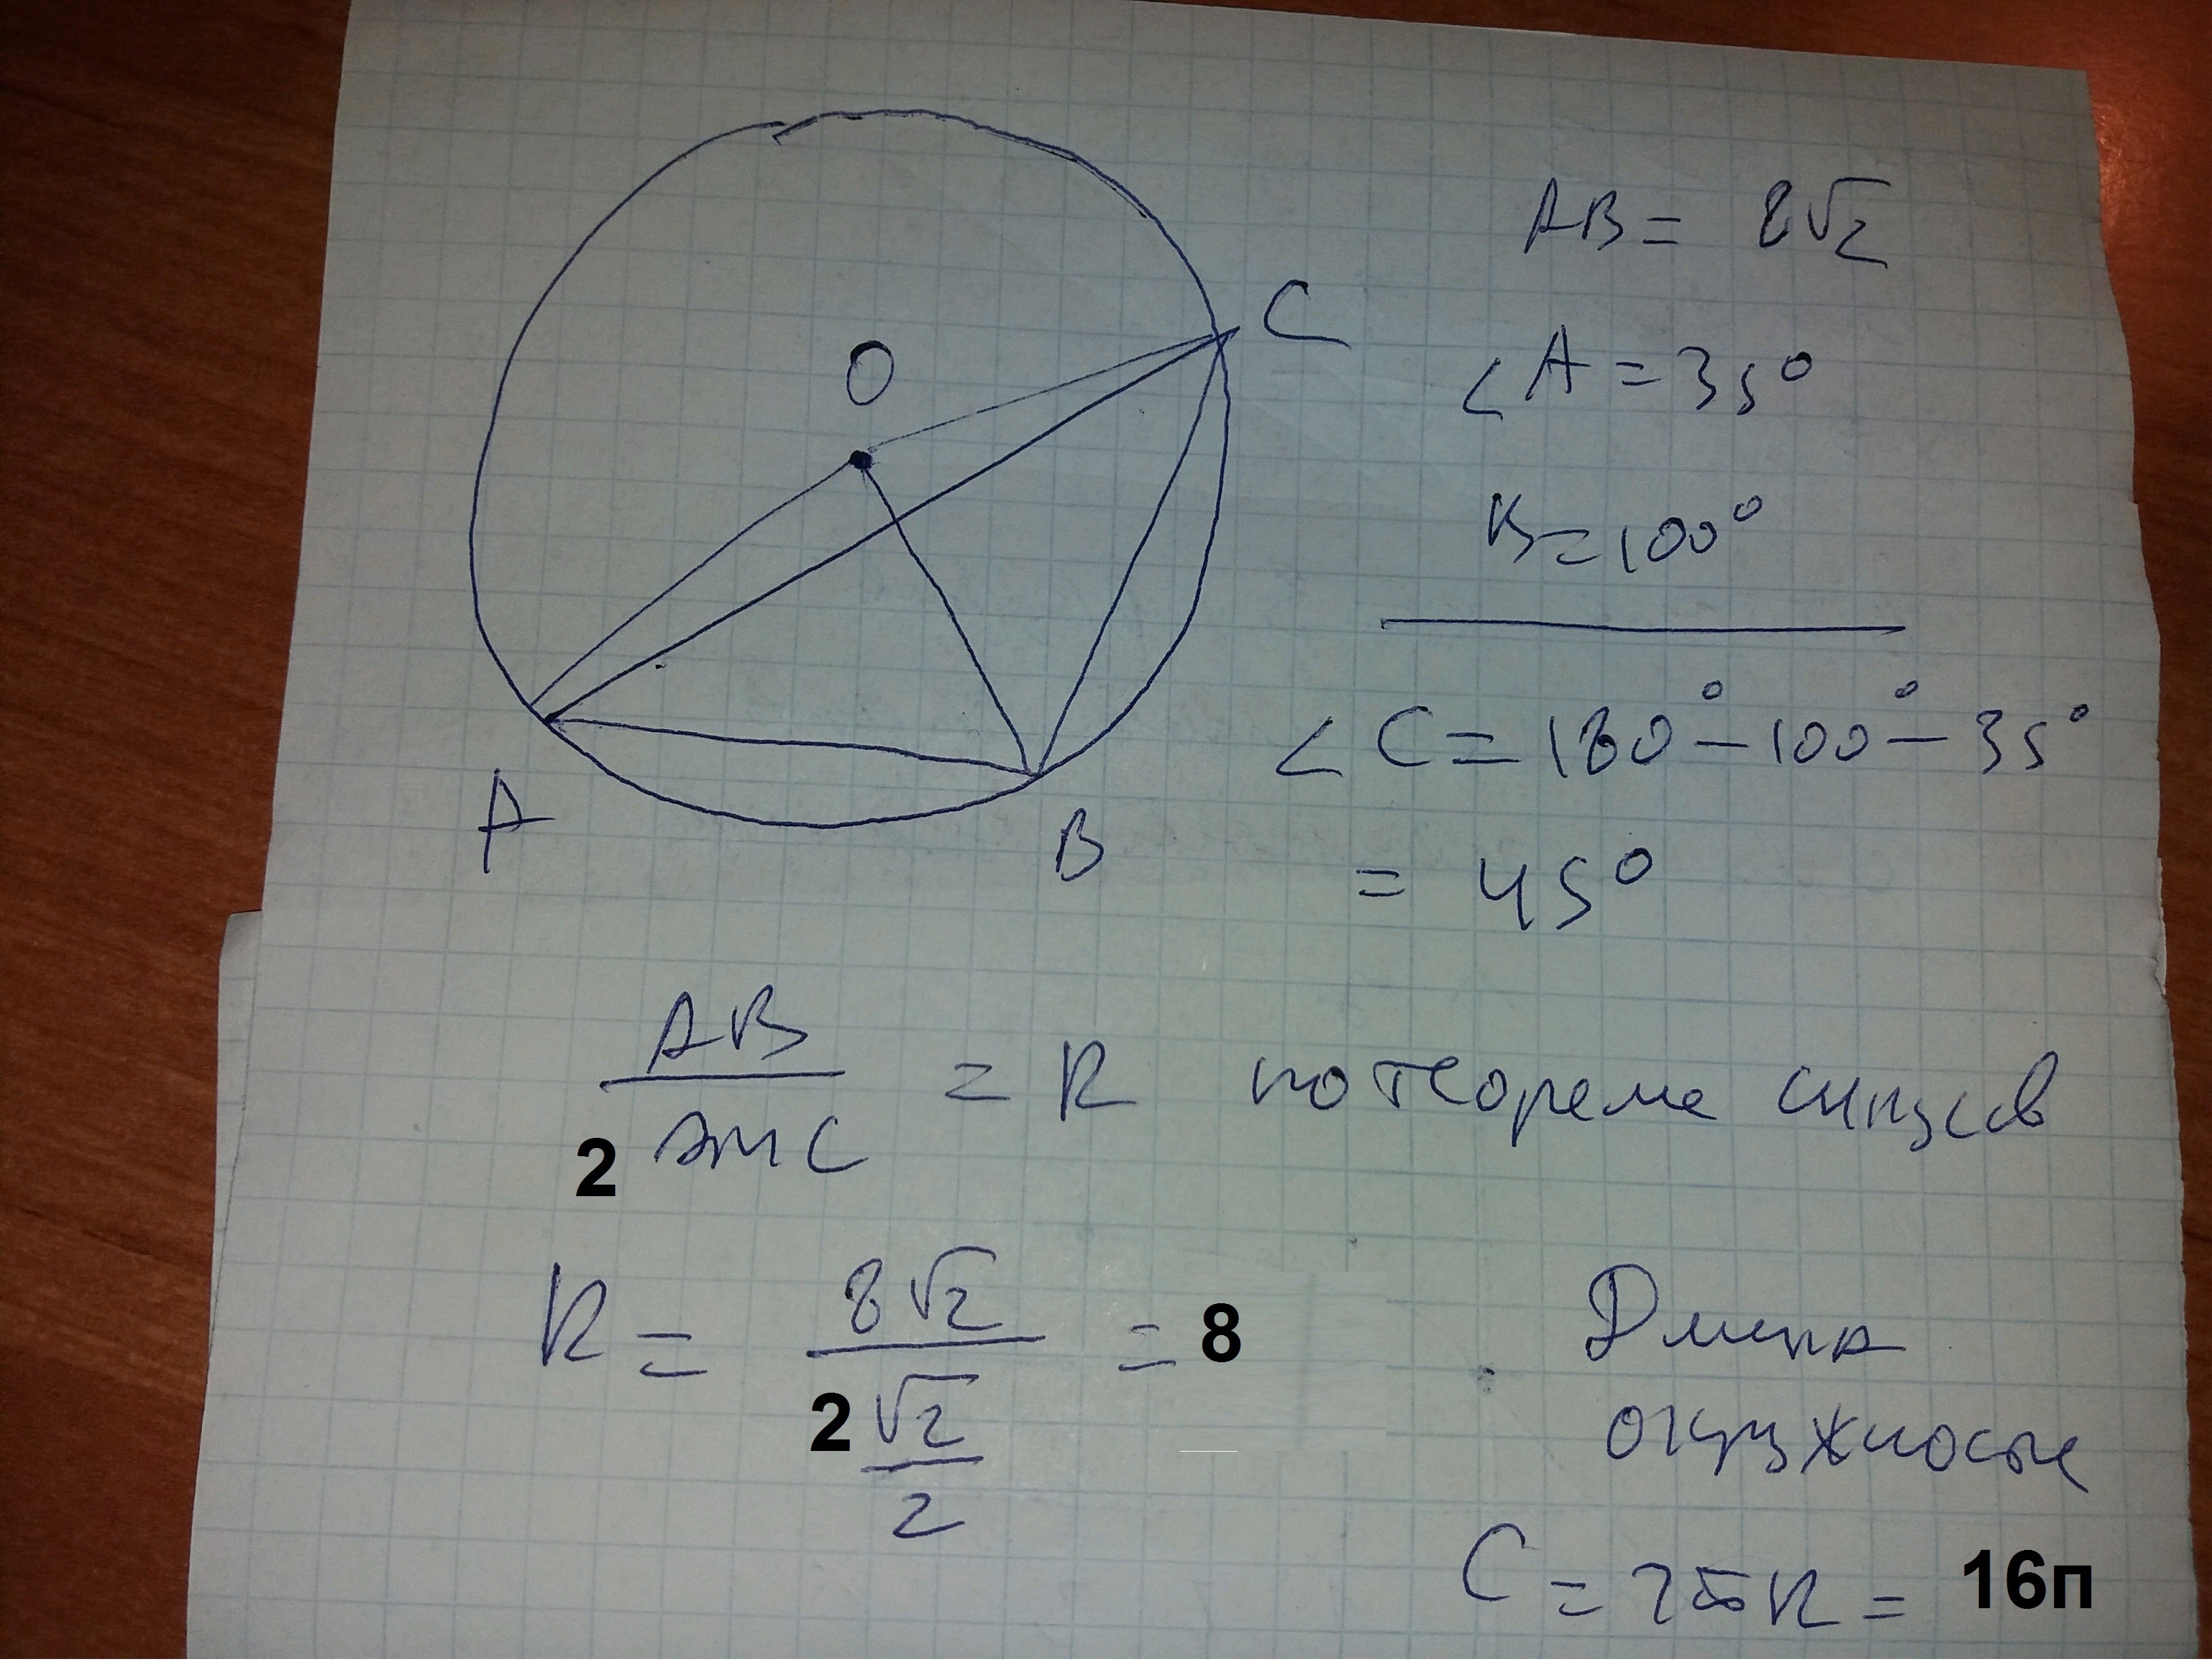 C
O
A
B
AB = 8√2
∠A = 35°
B = 100°
∠C = 180° - 100° - 35°
= 45°
AB / 2 sin C = R по теореме синусов
R = 8√2 / 2 √2/2 = 8
Длина
окружности
C = 2πR = 16п